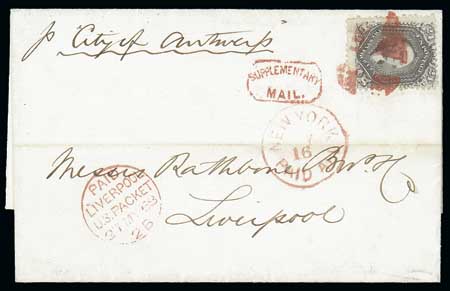 p "City of Antwerp"
SUPPLEMENTARY
MAIL.
NEW YORK
16
PAID
Messrs Rathbone Bros & Co
Liverpool
PAID
LIVERPOOL
U.S. PACKET